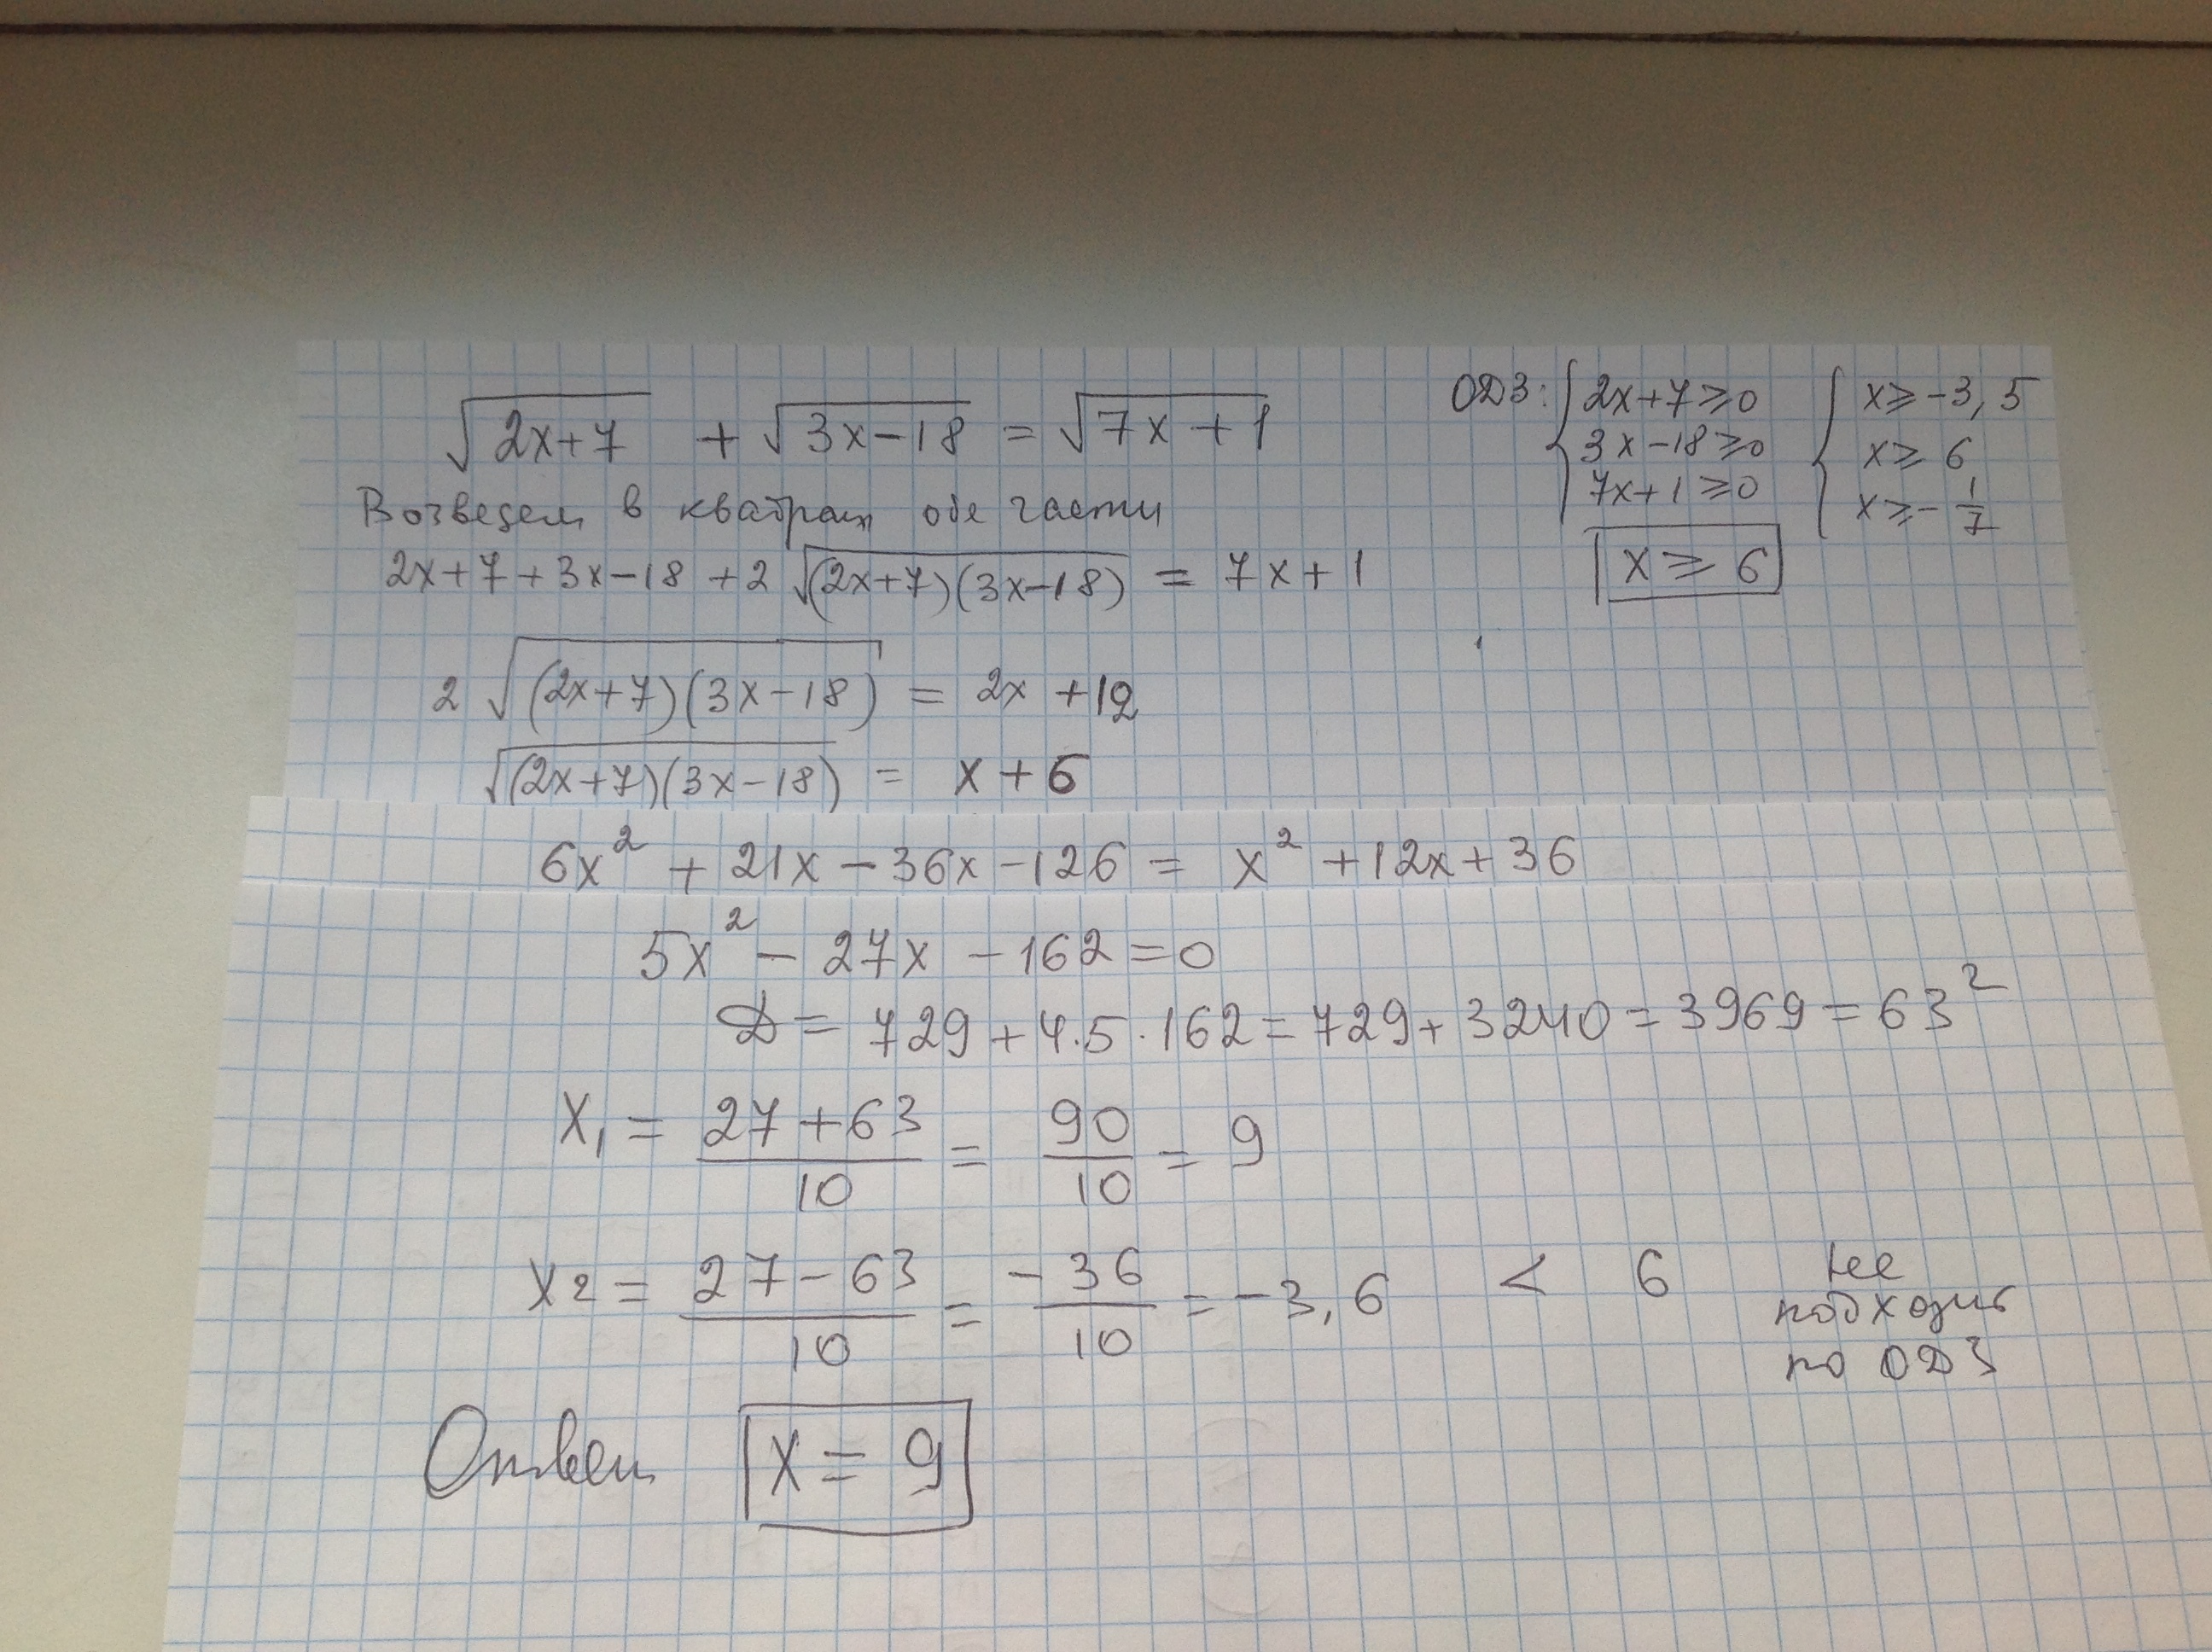 √(2x+7) + √(3x-18) = √(7x+1)
ОДЗ: { 2x+7 ≥ 0 { x ≥ -3,5
3x-18 ≥ 0 x ≥ 6
7x+1 ≥ 0 x ≥ -1/7
x ≥ 6
Возведем в квадрат обе части
2x+7+3x-18+2√((2x+7)(3x-18)) = 7x+1
2√((2x+7)(3x-18)) = 2x+12
√((2x+7)(3x-18)) = x+6
6x² + 21x - 36x - 126 = x² + 12x + 36
5x² - 27x - 162 = 0
Д = 729 + 4·5·162 = 729 + 3240 = 3969 = 63²
x₁ = (27+63)/10 = 90/10 = 9
x₂ = (27-63)/10 = -36/10 = -3,6 < 6 не
подходит
по ОДЗ
Ответ x = 9